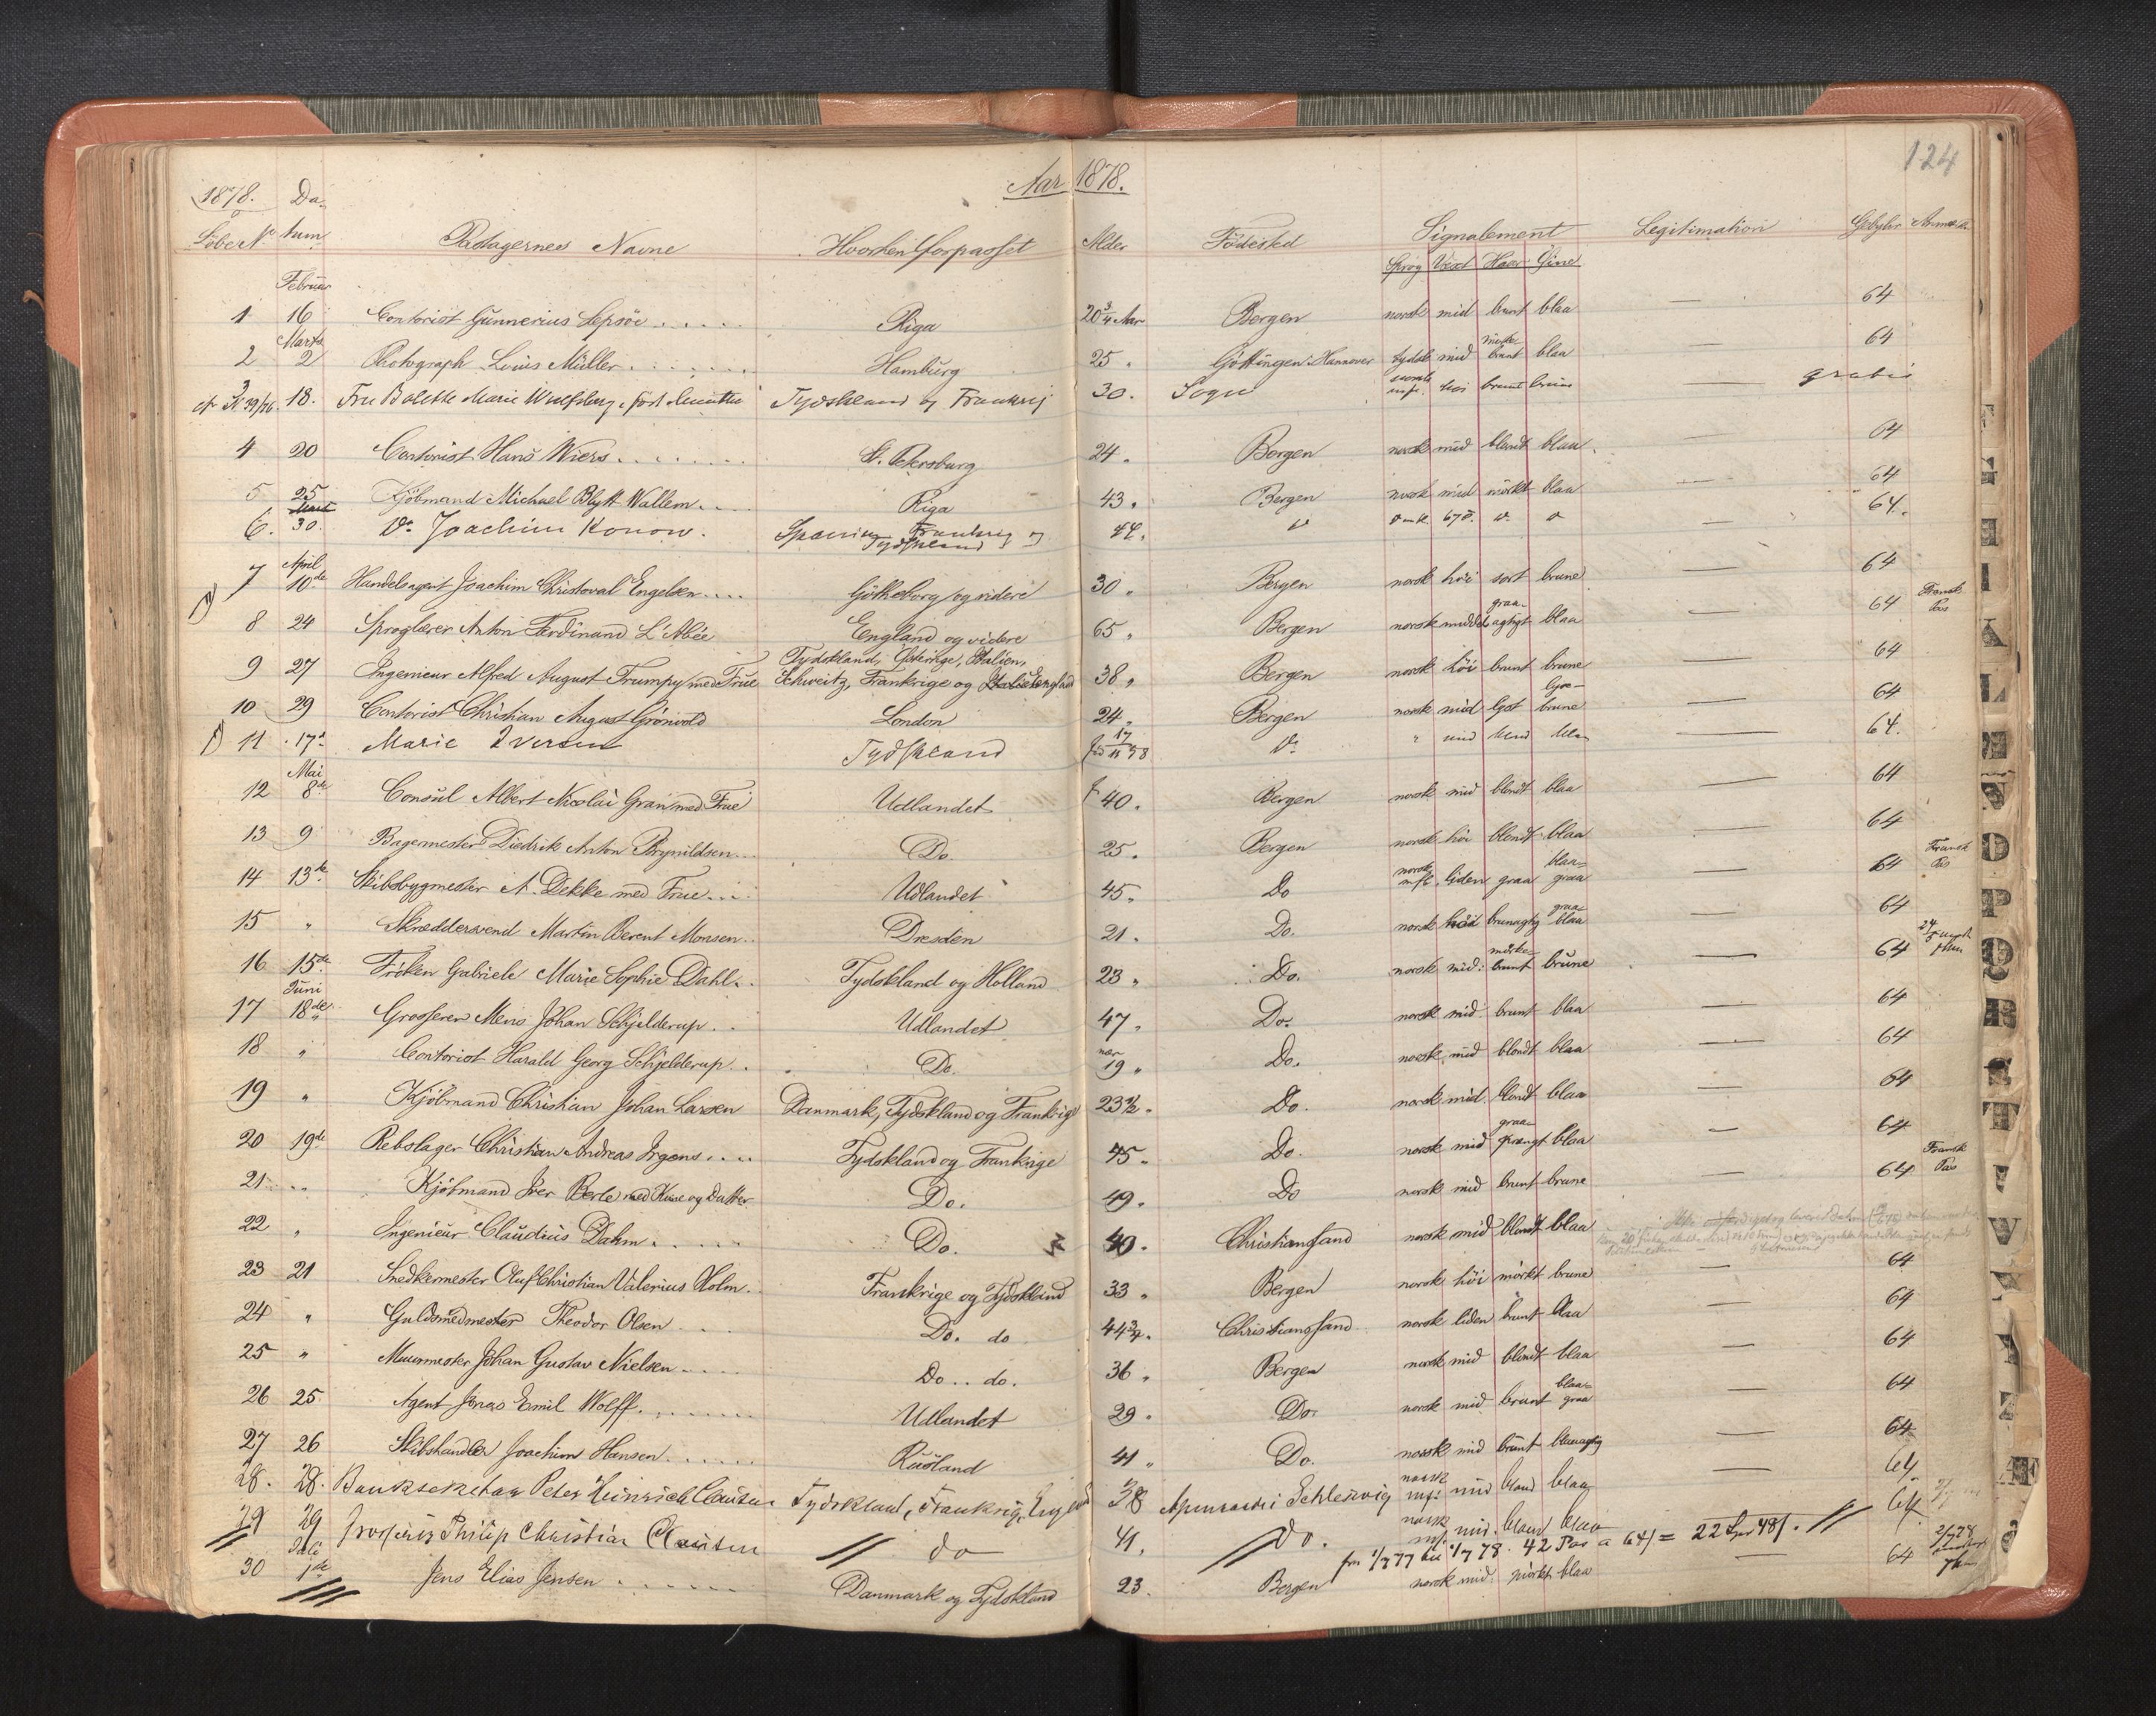 124
Aar 1878.
1878. Da-
Løbe No tum Passagernes Navne Hvorhen forpasset Alder Fødested Signalement Legitimation Gebyhr
Sprog Vext Haar Öine
Februar
1 16 Contorist Gunnerius Lepsöe Riga 20 3/4 Aar Bergen norsk mid brunt blaa — 64
Marts
2 2 Photograph Louis Müller Hamburg 25 " Göttingen i Hannover tydsk mid mörke- brunt blaa — 64
3 18. Fru Bolette Marie Tydskland og Frankrig 30. Sogn norsk høi brunt brune — gratis
4 20 Contorist Hans Wiers St. Petersburg 24 " Bergen norsk mid blondt blaa — 64
5 25 Kjöbmand Michael Blytt Wallem Riga 43 " Bergen norsk mid mörkt blaa — 64
6. 30. Do Joachim Konow. Spanien Frankrig og Tydskland 44. Do — 64.
April
7 10de Handelsagent Joachim Christoval Engelsen Götheborg og videre 30 " Bergen norsk höi sort brune — 64
8 24 Sproglærer Anton Ferdinand L'Abée England og videre 65 " Bergen norsk middel graa- agtigt blaa — 64 Fransk Pas
9 27 Ingenieur Alfred August Trumpy med Frue Tydskland, Östrige, Italien, Schweitz, Frankrige og England 38 " Bergen norsk höi brunt brune — 64
10 29 Contorist Christian August Grönvold London 24 " Bergen norsk mid lyst lyse- brune — 64
11 17 Marie Iversen Tydskland Do " mid blond blaa — 64.
Mai
12 8de Consul Albert Nicolai Gran med Frue Udlandet 40. Bergen norsk mid blondt blaa — 64
13 9 Bagermester Diedrik Anton Brynildsen Do. 25. Bergen norsk höi blondt blaa — 64
14 13de Skibsbygmester A. Dekke med Frue Udlandet 45 " Do norsk liden graa blaa- graa — 64 Fransk Pas
15 " Skræddersvend Martin Berent Monsen Dresden 21. Do. norsk höi brunagtig graa- blaa — 64
16 15de Fröken Gabriele Marie Sophie Dahl Tydskland og Holland 23 " Do. norsk mid mörke- brunt brune — 64
Juni
17 18de Grosserer Mens Johan Schjelderup Udlandet 47 " Do. norsk mid brunt blaa — 64
18 " Contorist Harald Georg Schjelderup Do. nær 19 " Do. norsk mid blondt blaa — 64
19 " Kjöbmand Christian Johan Larsen Danmark, Tydskland og Frankrige 23 1/2 " Do. norsk mid blondt blaa — 64
20 19de Rebslager Christian Andreas Irgens Tydskland og Frankrige 45 " Do. norsk mid graa- sprængt blaa — 64
21 " Kjöbmand Iver Berle med Kone og Datter Do. 49. Do norsk mid brunt brune — 64 Fransk Pas
22 " Ingenieur Claudius Dahm Do. 40. Christianssand norsk mid blondt blaa
23 21 Snedkermester Oluf Christian Valerius Holm Frankrige og Tydskland 33 " Bergen norsk höi mörkt brune — 64
24 " Guldsmedmester Theodor Olsen Do. do 44 3/4 " Christianssand norsk liden brunt blaa — 64
25 " Muurmester Johan Gustav Nielsen Do. do. 36 " Bergen norsk mid blondt blaa — 64
26 25. Agent Jonas Emil Wolff Udlandet 29. Do. norsk mid brunt blaa- graa — 64
27 26 Skibshandler Joachim Hansen Rusland 41 " Do. norsk mid brunt blaaagtig — 64
28. 28. Banksekretær Peter Heinrich Clausen Tydskland, Frankrig, England 38 Apenrade i Schleswig norsk mid blond blaa — 64
29 29 Philip Christian Clausen do 41. Do. norsk mid. blond blaa 64
fra 1/7 77 til 1/7 78. 42 Pas a 64/ = 22 48/.
Juli
30 1ste Jens Elias Jensen Danmark og Tydskland 23. Bergen norsk mid mörkt blaa — 64